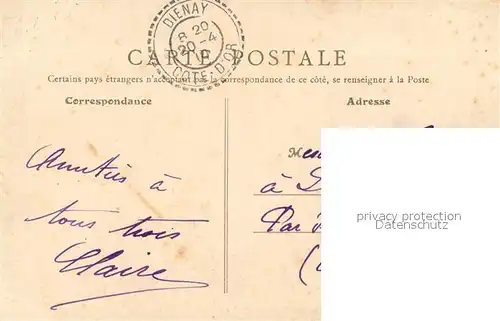 DIENAY
8 20
20 -4
COTE-D'OR
CARTE POSTALE
Certains pays étrangers n'acceptant pas la correspondance de ce côté, se renseigner à la Poste
Correspondance
Adresse
Amitiés à
tous trois
Claire
à
Par
privacy protection
Datenschutz